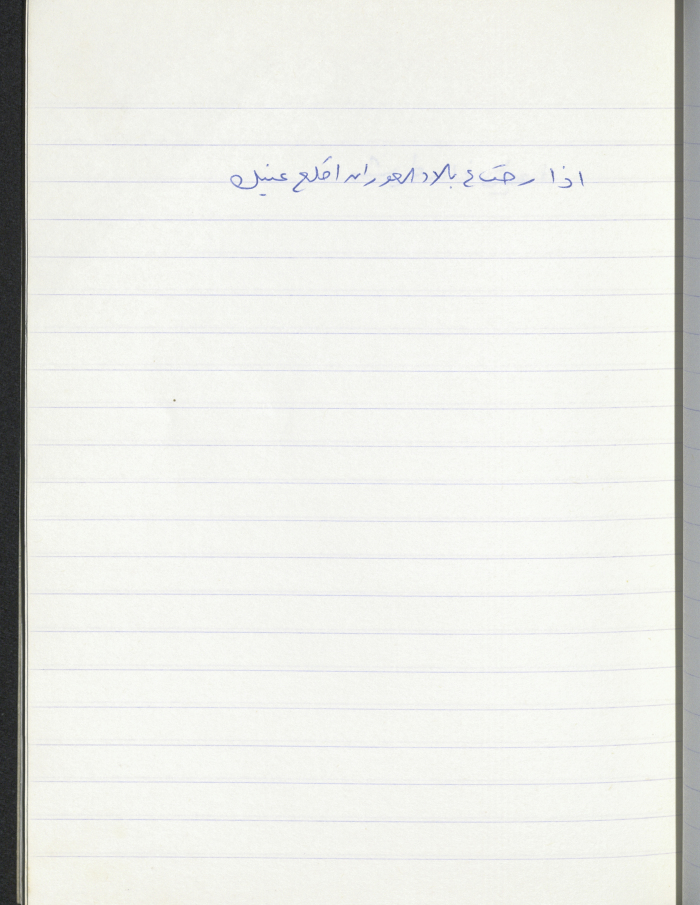 اذا رحت ع بلاد العوران اقلع عنيك